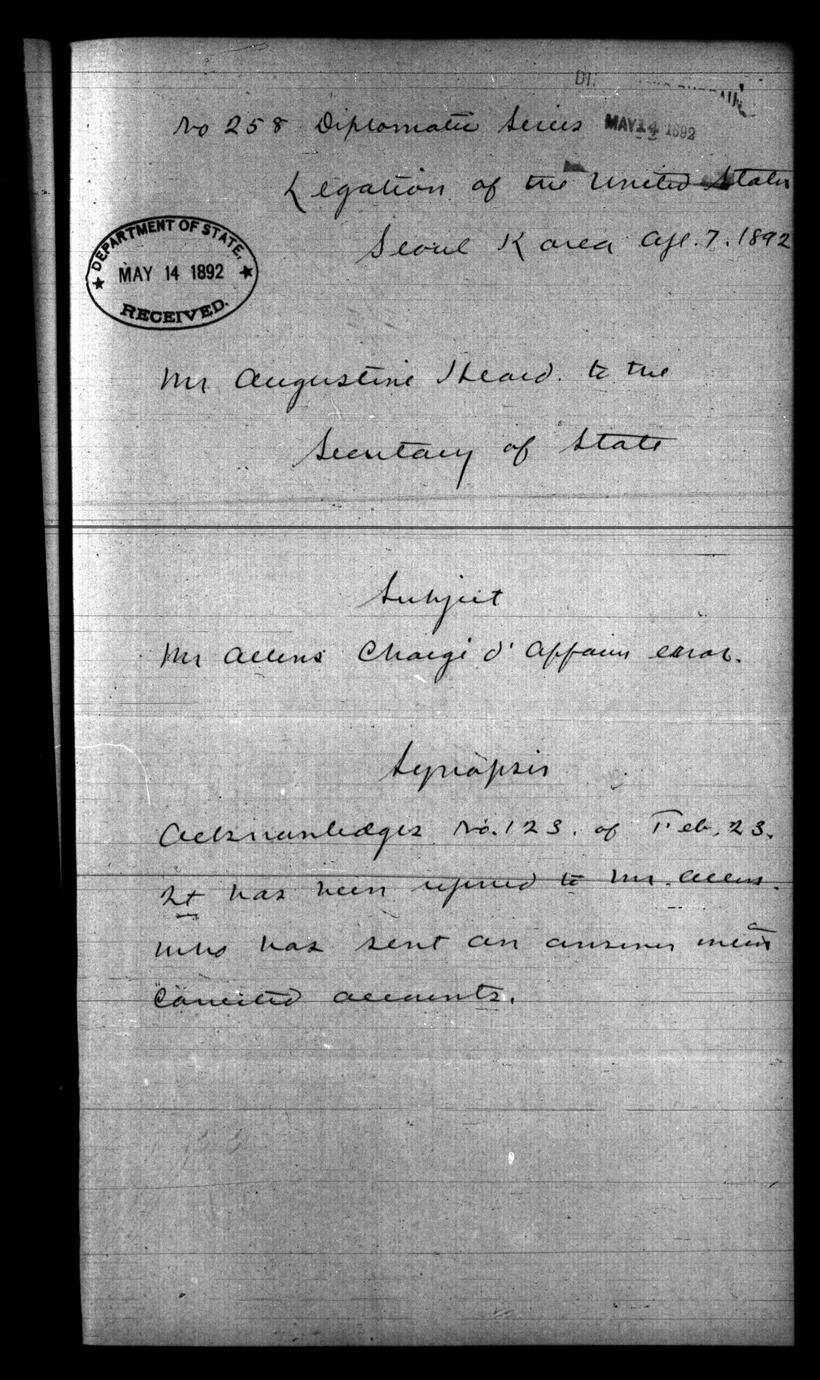 No 258 Diplomatic Series
MAY 14 1892
Legation of the United States
Seoul Korea Apl. 7. 1892
DEPARTMENT OF STATE,
MAY 14 1892
RECEIVED.
Mr Augustine Heard. to the
Secretary of State
Subject
Mr Allens Chargé d' Affairs error.
Synopsis
Acknowledges No. 123. of Feb. 23.
It has been referred to Mr. Allen.
who has sent an answer with
corrected accounts.